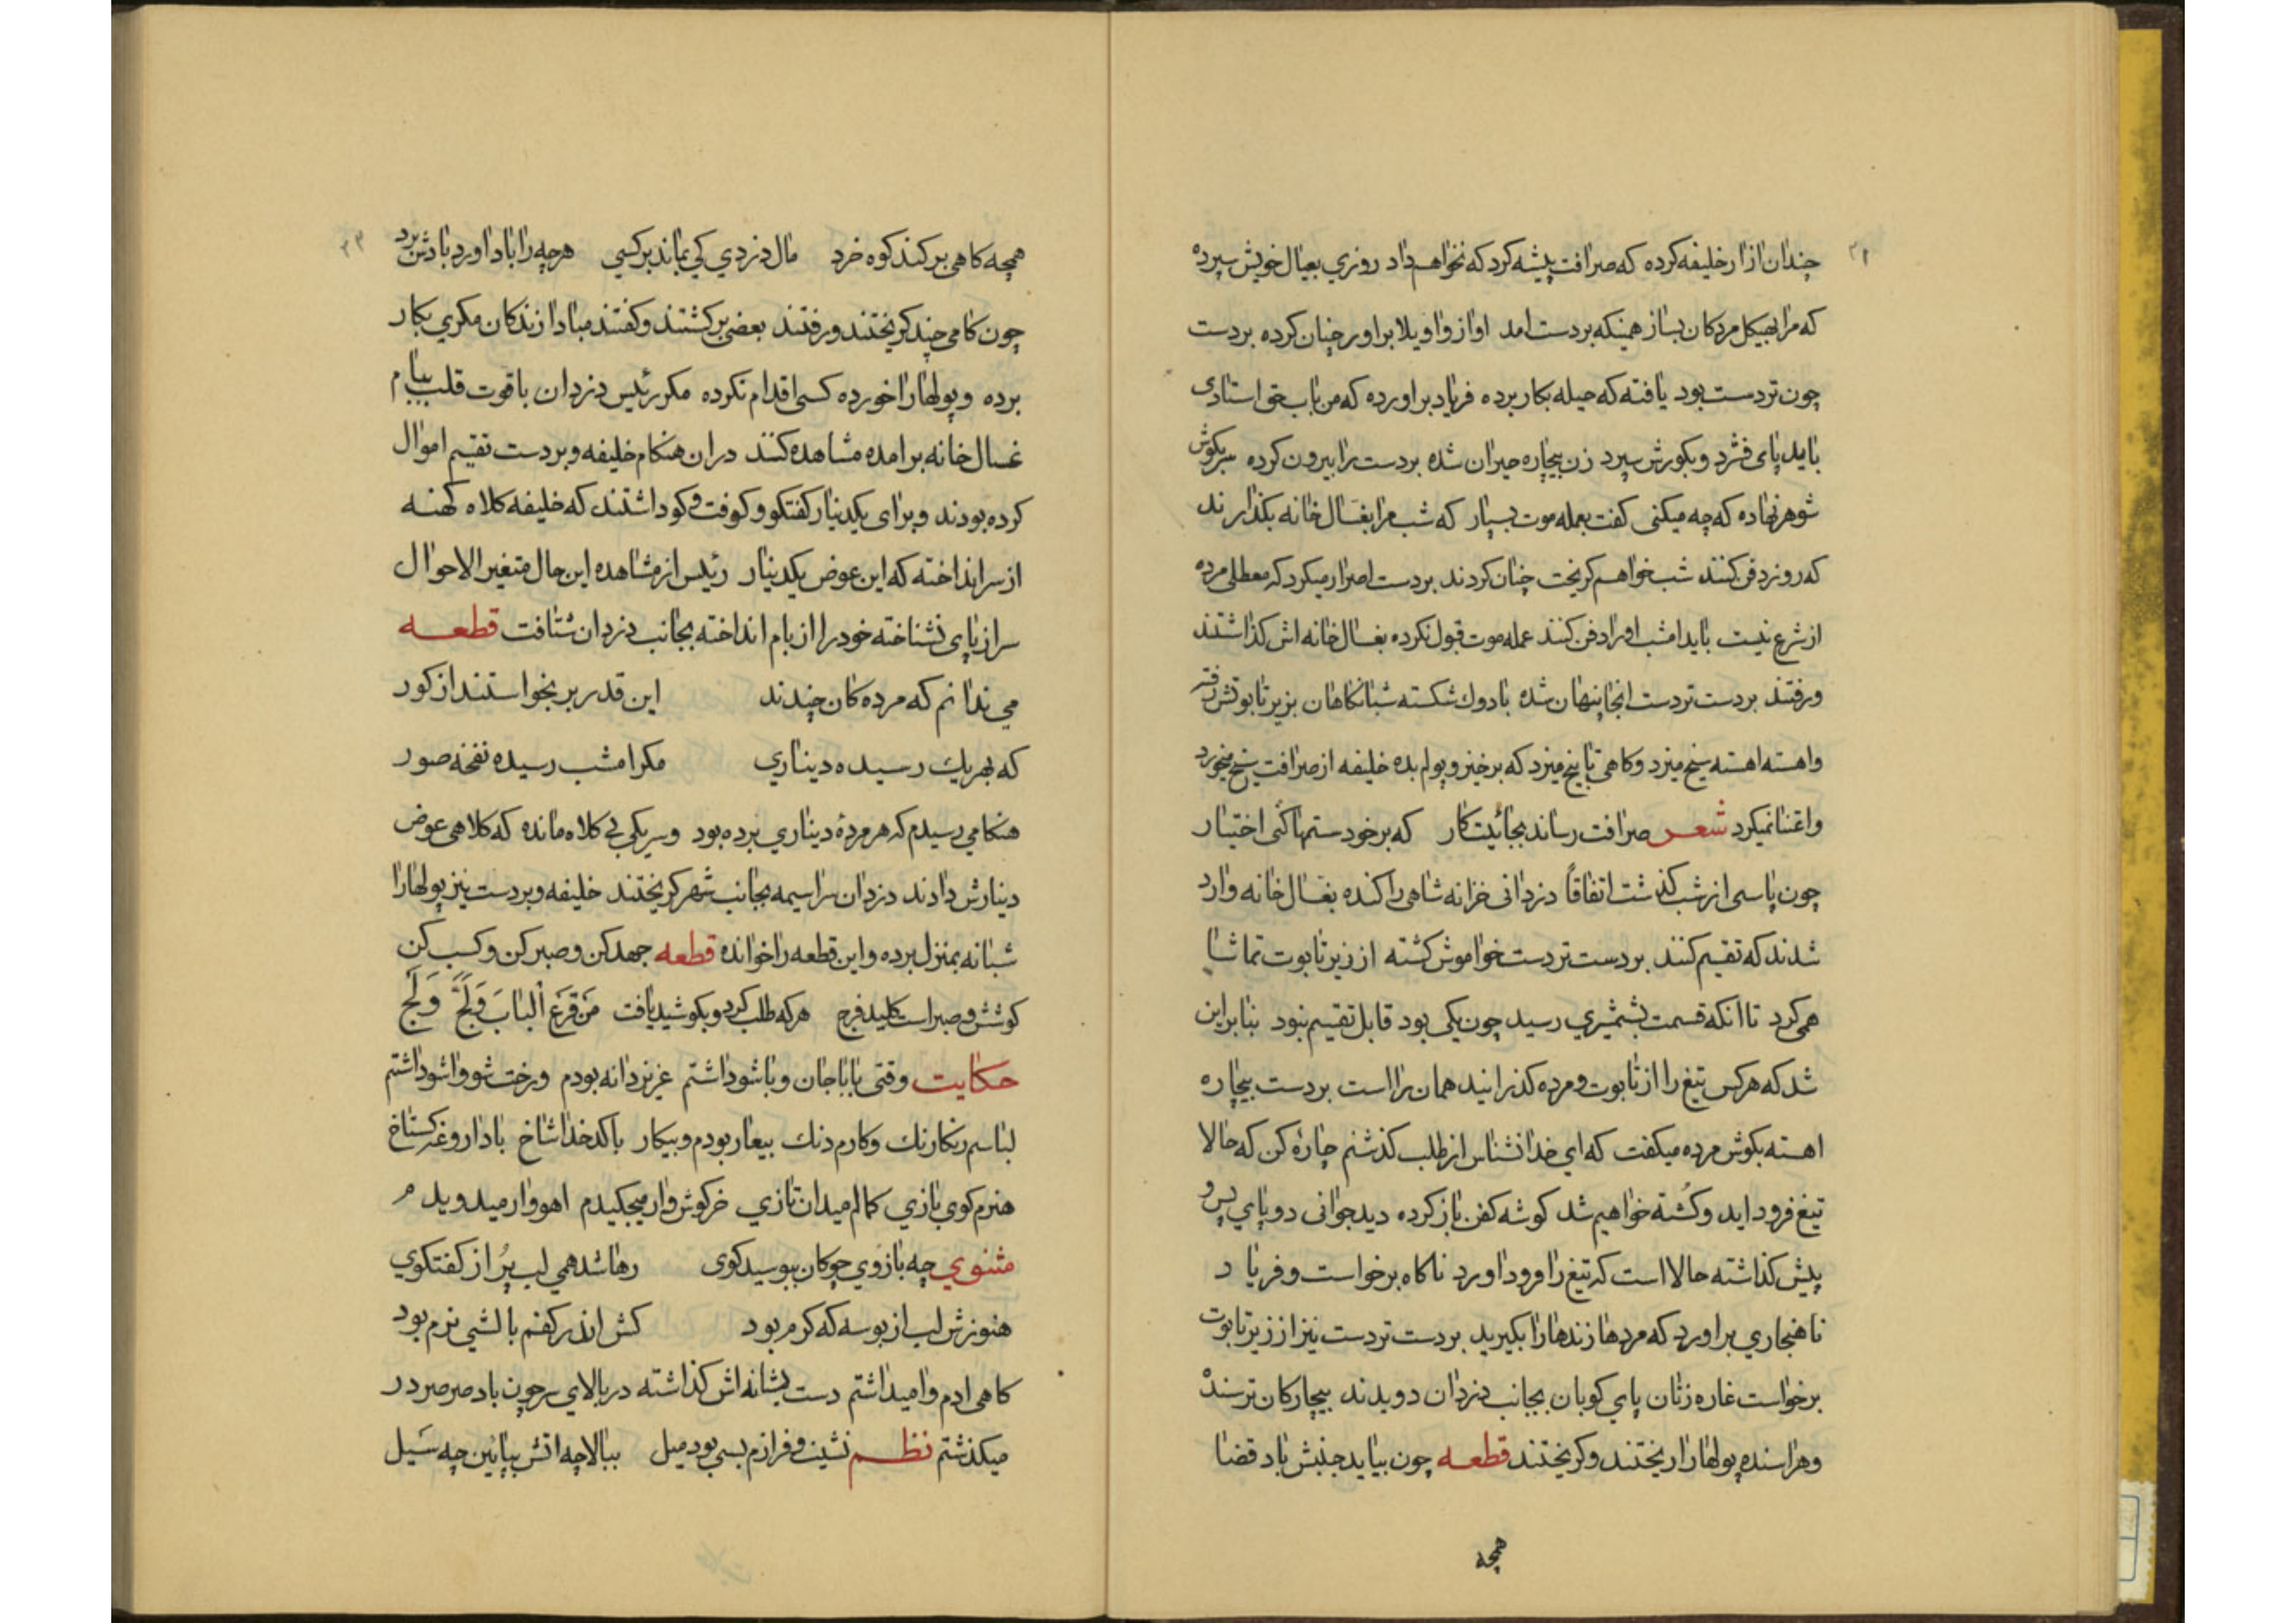 چندان ازار خلیفه کرده که صرافت پیشه کرد که نخواهم داد روزی بعیال خویش سپرده
که مرا بهیکل مردکان بساز همینکه بردست امد اواز واویلا براور چنان کرده بردست
چون تردست بود یافته که حیله بکار برده فریاد براورده که من باب حق استادی
باید پای فشرد و بکورش سپرد زن بیچاره حیران شده بردست را بیرون کرده سر بکوش
شوهر نهاده که چه میکنی کفت بعمله موت بسپار که شب مرا بغسالخانه بکذارند
که روز دفن کنند شب خواهم کریخت چنان کردند بردست اصرار میکرد که معطلی مرده
از شرع نیست باید امشب او را دفن کنند عمله موت قبول نکرده بغسالخانه اش کذاشتند
و رفتند بردست تردست انجا پنهان شده با دوك شکسته شبانکاهان بزیر تابوتش رفته
و اهسته اهسته سیخ میزد و کاهی تابیخ میزد که برخیز و پولم بده خلیفه از صرافت سیخ میخورد
و اعتنا نمیکرد شعر صرافت رساند بجائیت کار که بر خود ستمها کنی اختیار
چون پاسی از شب کذشت اتفاقاً دزدانی خزانه شاهی را کنده بغسالخانه وارد
شدند که تقسیم کنند بردست تردست خواموش کشته از زیر تابوت تماشا
همی کرد تا انکه قسمت بشمشیری رسید چون یکی بود قابل تقسیم نبود بنابراین
شد که هر کس تیغ را از تابوت و مرده کذرانید همان را است بردست بیچاره
اهسته بکوش مرده میکفت که ای خدا نشناس از طلب کذشتم چارهٔ کن که حالا
تیغ فرود اید و کُشته خواهیم شد کوشه کفن باز کرده دید جوانی دو پای پس و
پیش کذاشته حالا است که تیغ را فرود اورد ناکاه برخواست و فریاد
ناهنجاری براورد که مردها زندها را بکیرید بردست تردست نیز از زیر تابوت
برخواست غاره زنان پای کوبان بجانب دزدان دویدند بیچارکان ترسنده
و هراسنده پولها را ریختند و کریختند قطعه چون بیاید جنبش باد قضا
همچه
همچه کاهی بر کند کوه خرد مال دزدی کی بماند بر کسی هرچه را باد اورد بادش برد
چون کامی چند کریختند و رفتند بعضی برکشتند و کفتند مبادا زندکان مکری بکار
برده و پولها را خورده کسی اقدام نکرده مکر رئیس دزدان با قوت قلب ببام
غسالخانه برامده مشاهده کند در ان هنکام خلیفه و بردست تقسیم اموال
کرده بودند و برای یکدینار کفتکو و کوفت و کو داشتند که خلیفه کلاه کهنه
از سر انداخته که این عوض یکدینار رئیس از مشاهده این حال متغیر الاحوال
سر از پای نشناخته خود را از بام انداخته بجانب دزدان شتافت قطعه
می ندانم که مرده کان چندند این قدر بر بخواستند از کور
که بهر یك رسیده دیناری مکر امشب رسیده نفخه صور
هنکامی رسیدم که هر مردهٔ دیناری برده بود و سر یکی بی کلاه مانده که کلاهی عوض
دینارش دادند دزدان سراسیمه بجانب شهر کریختند خلیفه و بردست نیز پولها را
شبانه بمنزل برده و این قطعه را خوانده قطعه جهد کن و صبر کن و کسب کن
کوشش و صبر است کلید فرج هر که طلب کرد و بکوشید یافت مَن قَرَعَ اْلبابَ وَلَجَّ وَلَج
حکایت وقتی باباجان و باشو داشتم عزیز دانه بودم و رخت شو واشو داشتم
لباسم رنکارنك و کارم دنك بیعار بودم و بیکار با کدخدا شاخ با داروغه کستاخ
هنرم کوی بازی کمالم میدان تازی خرکوش وار میجکیدم اهو وار میدویدم
مثنوی چه بازوی چوکان ببوسید کوی رها شد همی لب پُر از کفتکوی
هنوزش لب از بوسه که کرم بود کش اندر کفم بالشی نرم بود
کاهی ادم وامیداشتم دست بشانه اش کذاشته در بالای سر چون باد صرصر در
میکذشتم نظم نشیب و فرازم بسی بود میل ببالا چه اتش بپایین چه سَیل